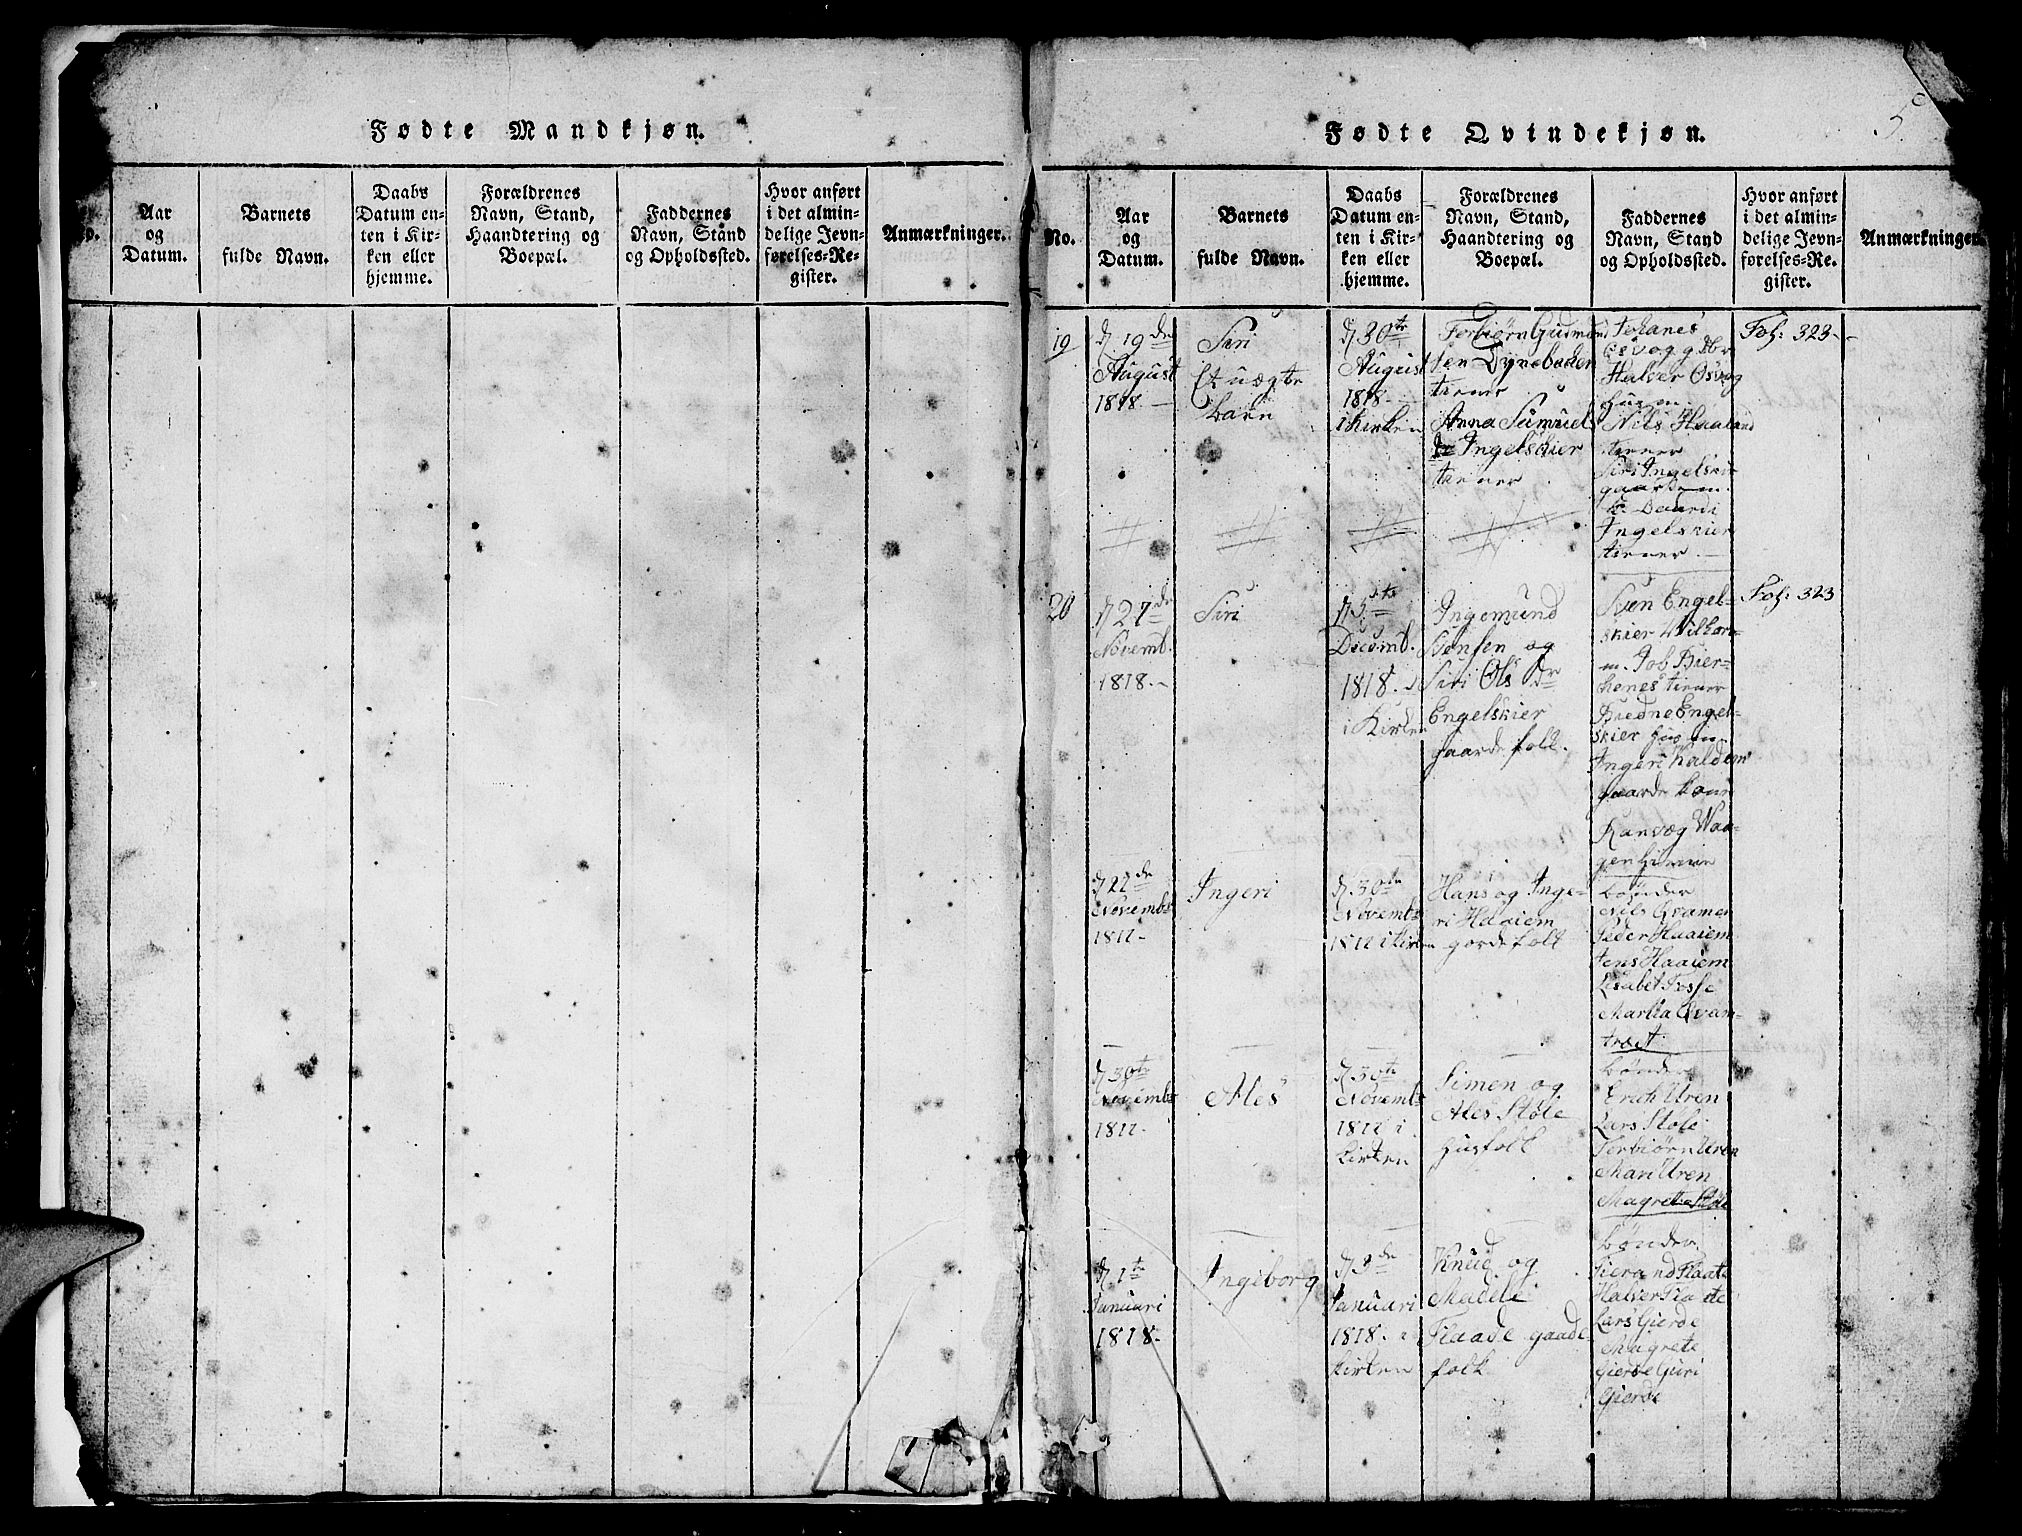 Fødte Mandkjøn.
Aar
og
Datum.
Barnets
fulde Navn.
Daabs
Datum en-
ten i Kir-
ken eller
hjemme.
Forældrenes
Navn, Stand,
Haandtering og
Boepæl.
Faddernes
Navn, Stand
og Opholdssted.
Hvor anført
i det almin-
delige Jevn-
førelses-Re-
gister.
Anmærkninger.
Fødte Qvindekjøn.
5
No.
Aar
og
Datum.
Barnets
fulde Navn.
Daabs
Datum en-
ten i Kir-
ken eller
hjemme.
Forældrenes
Navn, Stand,
Haandtering og
Boepæl.
Faddernes
Navn, Stand
og Opholdssted.
Hvor anført
i det almin-
delige Jevn-
førelses-Re-
gister.
Anmærkninger.
19
d 19de
August
1818.
Siri
Et uægte
barn
d 30te
August
1818.
i Kirken
Torbiørn Gudmund
sen
tiener
Anna Samuels
dr Ingelskier
tiener
Johanes
Osvog
Halver Osvog
husm.
Nils Haaland
tiener
Siri Ingelskir
gaardem.
Ingelskier
tiener
Fol: 323
20
d 27de
Novemb.
1818.
Siri
d 5te
Decemb.
1818.
i Kirken
Ingemund
Bensen og
Siri Ols dr
Engelskier
gaardefolk.
Sven Engel-
skier
m. Job Bier-
kenes tiener
Engel-
skier husm
Ingeri
gaarde kone
Ranveg Waa-
gen
Fol: 323
d 22de
Novemb
1817.
Ingeri
d 30te
Novemb
1817 i Kirken
Hans og Inge-
ri Haaiem
gordefolk
bønder
Nils Qvamen
Peder Haaiem
Jens Haaiem
Lisabet Fosse
Martha Qvam-
træet
d 30te
Novemb
1817.
Ales
d 30te
Novemb
1817 i
Kirken
Simen og
Ales Støle
husfolk
bønder
Erich Uren
Lars Støle
Torbiørn Uren
Mari Uren
Magrete Støle
d 1te
Januari
1818.
Ingeborg
d 3de
Januari
1818. i
Kirken
Knud og
Madele
Flaade gaade
folk
bønder
Sierand Flaate
Halver Flaate
Lars Gierde
Magrete
Gierde Guri
Gierde